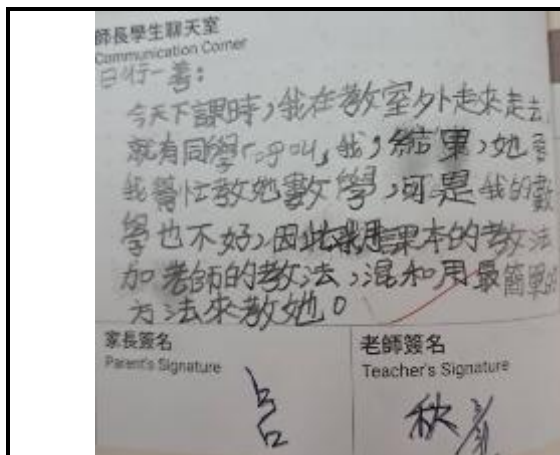 師長學生聊天室
Communication Corner
日行一善:
今天下課時,我在教室外走來走去,
就有同學 我,結果,她要
我幫忙教她數學,可是我的數
學也不好,因此我用課本的教法
加老師的教法,混和用最簡單的
方法來教她。
家長簽名
Parent's Signature
老師簽名
Teacher's Signature